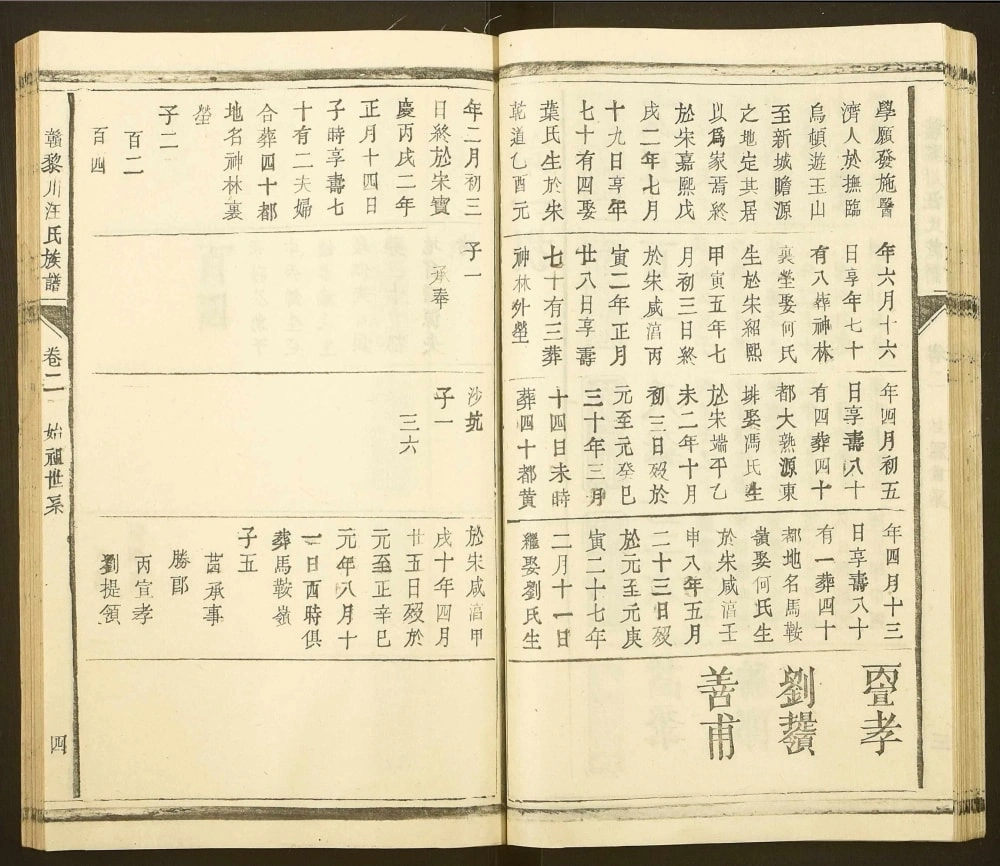 學願發施醫
濟人於撫臨
烏頓遊玉山
至新城瞻源
之地定其居
以爲家焉終
於宋嘉熙戊
戌二年七月
十九日享年
七十有四娶
葉氏生於宋
乾道乙酉元
年二月初三
日終於宋寶
慶丙戌二年
正月十四日
子時享壽七
十有二夫婦
合葬四十都
地名神林裏
塋
子二
百二
百四
年六月十六
日享年七十
有八葬神林
裏塋娶何氏
生於宋紹熙
甲寅五年七
月初三日終
於宋咸湻丙
寅二年正月
廿八日享壽
七十有三葬
神林外塋
子一
承奉
年四月初五
日享壽八十
有四葬四十
都大熟源東
排娶馮氏生
於宋端平乙
未二年十月
初三日歿於
元至元癸巳
三十年三月
十四日未時
葬四十都黄
沙坑
子一
三六
年四月十三
日享壽八十
有一葬四十
都地名馬鞍
嶺娶何氏生
於宋咸湻壬
申八年五月
二十三日歿
於元至元庚
寅二十七年
二月十一日
繼娶劉氏生
於宋咸湻甲
戌十年四月
廿五日歿於
元至正辛巳
元年八月十
一日酉時俱
葬馬鞍嶺
子五
萬承事
勝郎
丙宣孝
劉提領
丙宣孝
劉提領
善甫
贛黎川汪氏族譜
卷二
始祖世系
四